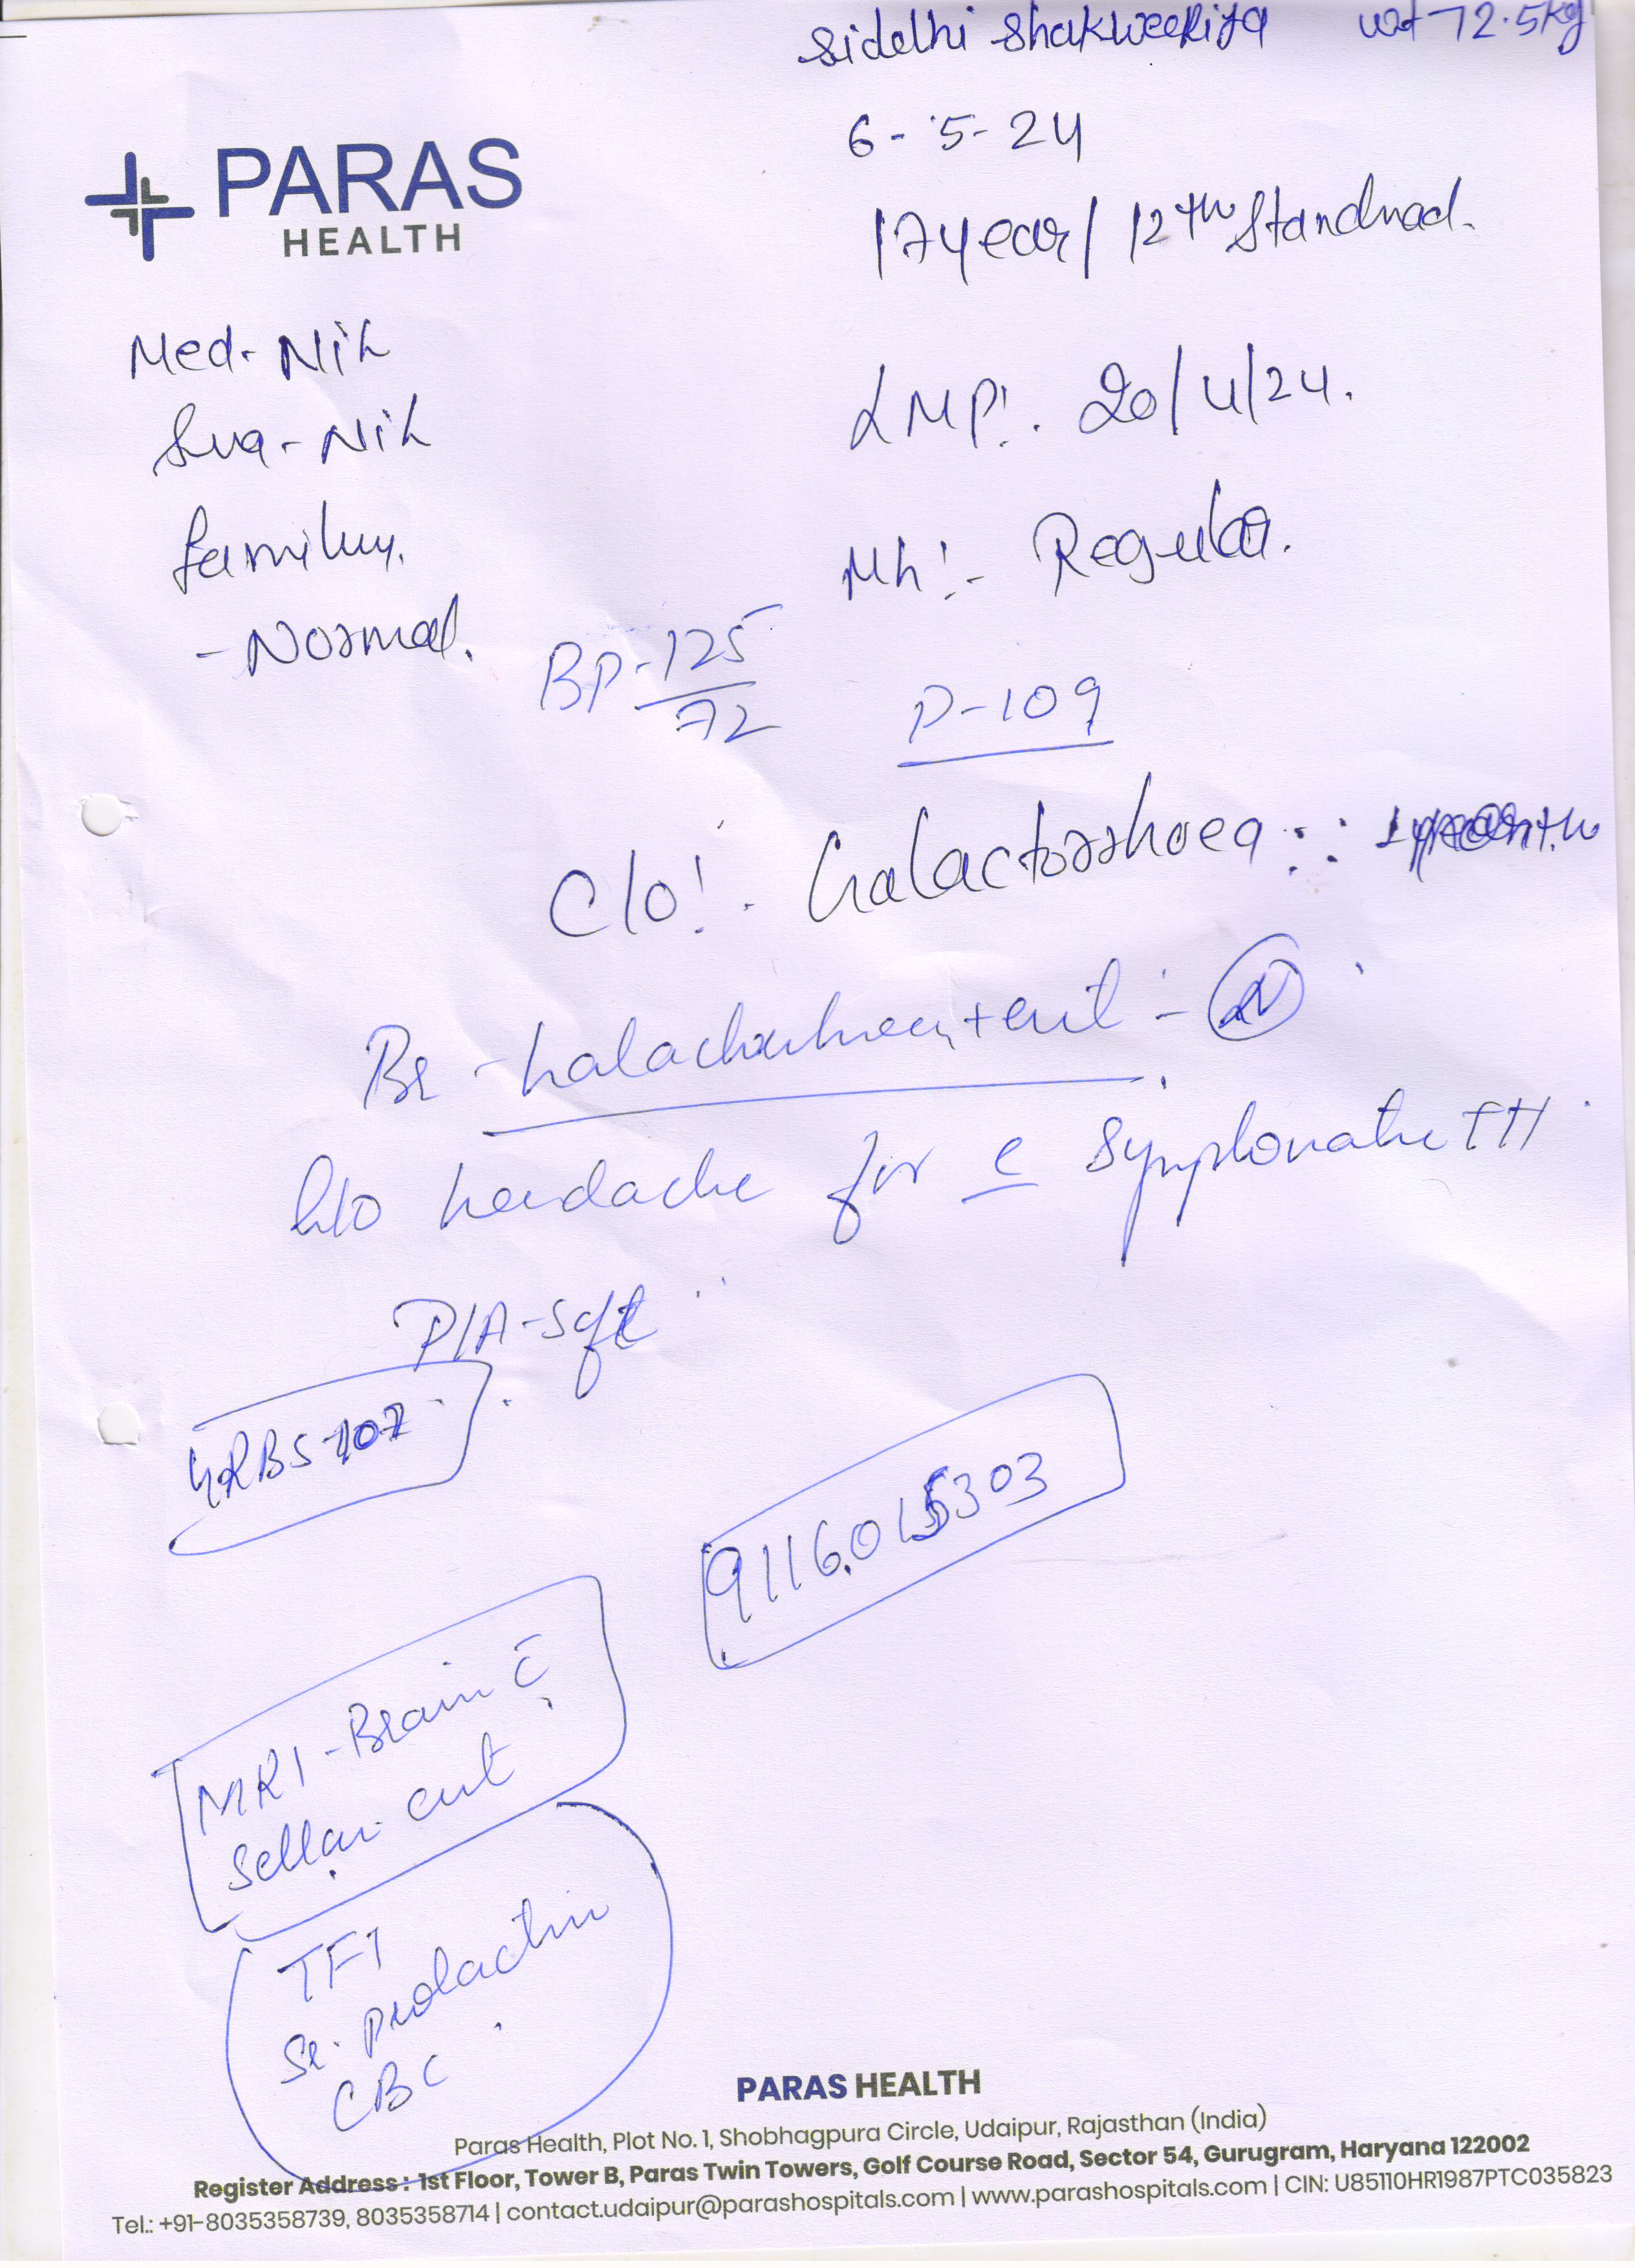 Siddhi Shakweeriya wt 72.5Kg
6-5-24
PARAS
HEALTH
17 year / 12th Standnad.
Med- Nil
LMP:- 20/4/24.
Sug- Nil
Family.
Mh:- Regular.
- Normal.
BP-125/72 P-109
C/o:- Galactorrhoea
Br -
h/o headache for c̄
P/A-soft
GRBS-107
9116015303
MRI-Brain c̄
sellar cut
TFT
Sr. prolactin
CBC
PARAS HEALTH
Paras Health, Plot No. 1, Shobhagpura Circle, Udaipur, Rajasthan (India)
Register Address : 1st Floor, Tower B, Paras Twin Towers, Golf Course Road, Sector 54, Gurugram, Haryana 122002
Tel.: +91-8035358739, 8035358714 | contact.udaipur@parashospitals.com | www.parashospitals.com | CIN: U85110HR1987PTC035823